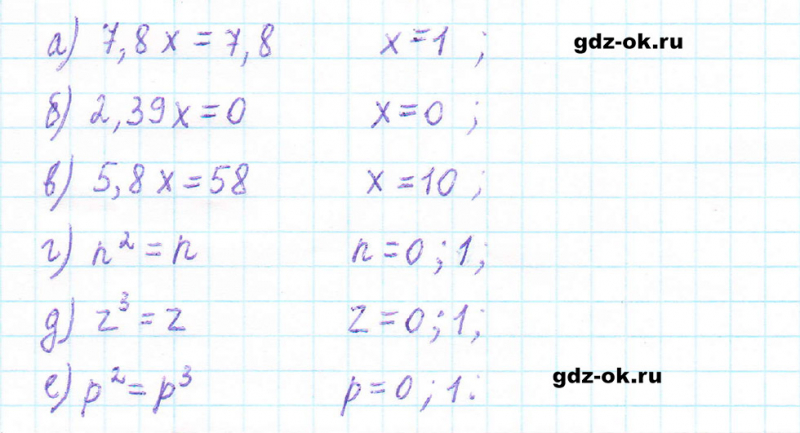 а) 7,8x = 7,8 x = 1 ; gdz-ok.ru
б) 2,39x = 0 x = 0 ;
в) 5,8x = 58 x = 10 ;
г) n² = n n = 0 ; 1 ;
д) z³ = z z = 0 ; 1 ;
е) p² = p³ p = 0 ; 1. gdz-ok.ru